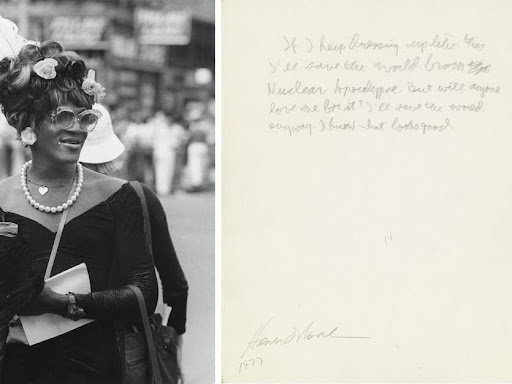 If I keep dressing up like this
I'll save the world from the
Nuclear Apocalypse. But will anyone
love me for it? I'll save the world
anyway. I know what looks good
1977